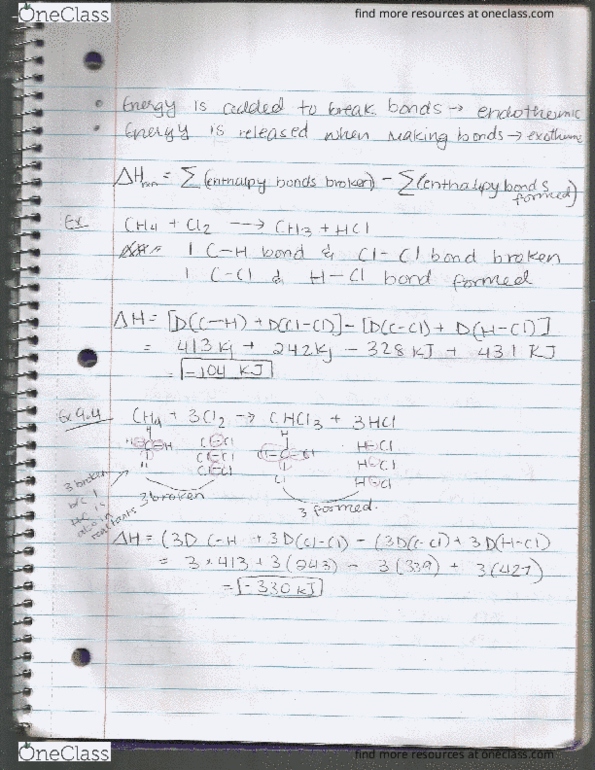 OneClass
find more resources at oneclass.com
• Energy is added to break bonds → endothermic
• Energy is released when making bonds → exothermic
ΔHrxn = Σ(enthalpy bonds broken) - Σ(enthalpy bonds formed)
Ex CH4 + Cl2 → CH3 + HCl
1 C-H bond & Cl-Cl bond broken
1 C-Cl & H-Cl bond formed
ΔH = [D(C-H) + D(Cl-Cl)] - [D(C-Cl) + D(H-Cl)]
= 413 Kj + 242 Kj - 328 KJ + 431 KJ
= -104 KJ
Ex 9.4 CH4 + 3Cl2 → CHCl3 + 3HCl
H
Cl-Cl
H-Cl
Cl-Cl
H-Cl
Cl-Cl
Cl
H-Cl
3 broken
b/c 1
H-C is
also in
reactants
3 broken
3 formed.
ΔH = (3D C-H + 3D(Cl-Cl) - (3D(C-Cl) + 3D(H-Cl)
= 3 × 413 + 3(243) - 3(339) + 3(427)
= -330 kJ
OneClass
find more resources at oneclass.com